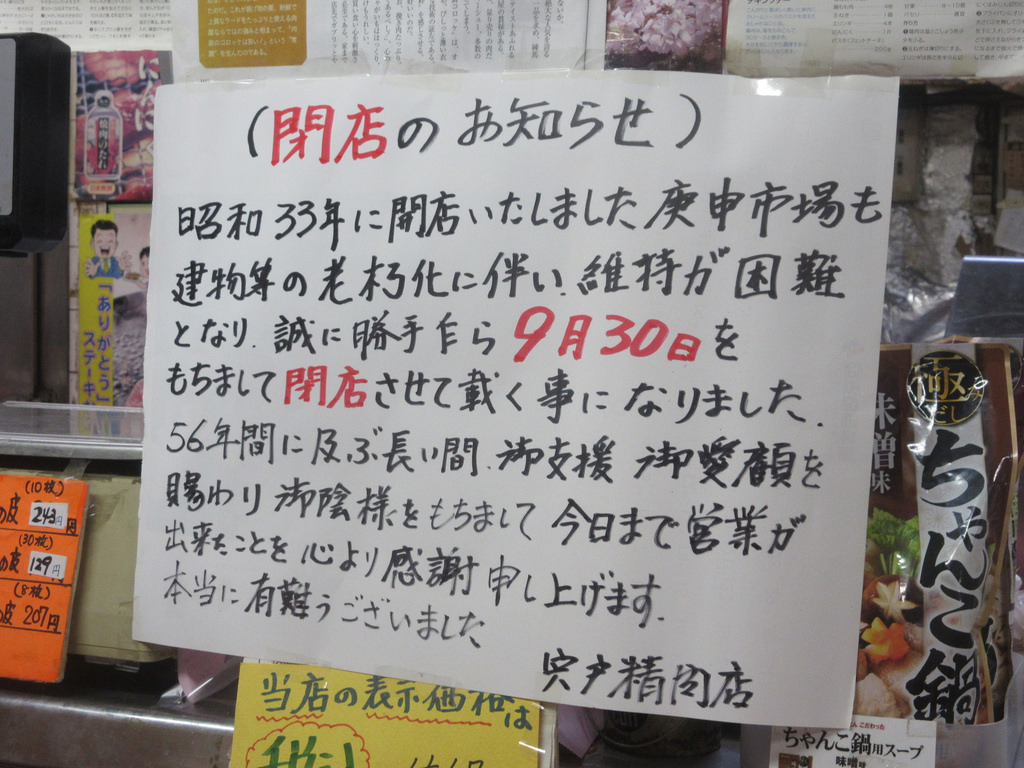 (閉店のお知らせ)
昭和33年に開店いたしました庚申市場も
建物等の老朽化に伴い、維持が困難
となり、誠に勝手乍ら9月30日を
もちまして閉店させて載く事になりました。
56年間に及ぶ長い間、御支援 御愛顧を
賜わり御陰様をもちまして今日まで営業が
出来たことを心より感謝申し上げます。
本当に有難うございました
宍戸精肉店
にんにく
焼肉のたれ
「ありがとう」
ステーキ
(10枚)
の皮 243円
(30枚)
の皮 129円
(8枚)
の皮 207円
当店の表示価格は
極
だし
味噌味
ちゃんこ鍋
こだわった
ちゃんこ鍋用スープ
味噌味